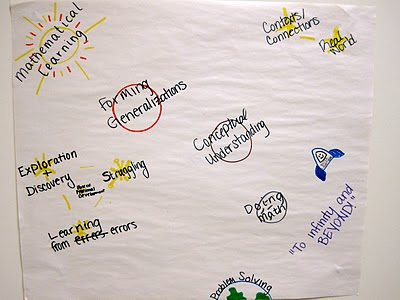 Mathematical
Learning
Contexts/
Connections
Real
World
Forming
Generalizations
Conceptual
Understanding
Exploration
+
Discovery
Struggling
Learning
from effers errors
Doing
math
"To infinity and
BEYOND!"
Problem Solving